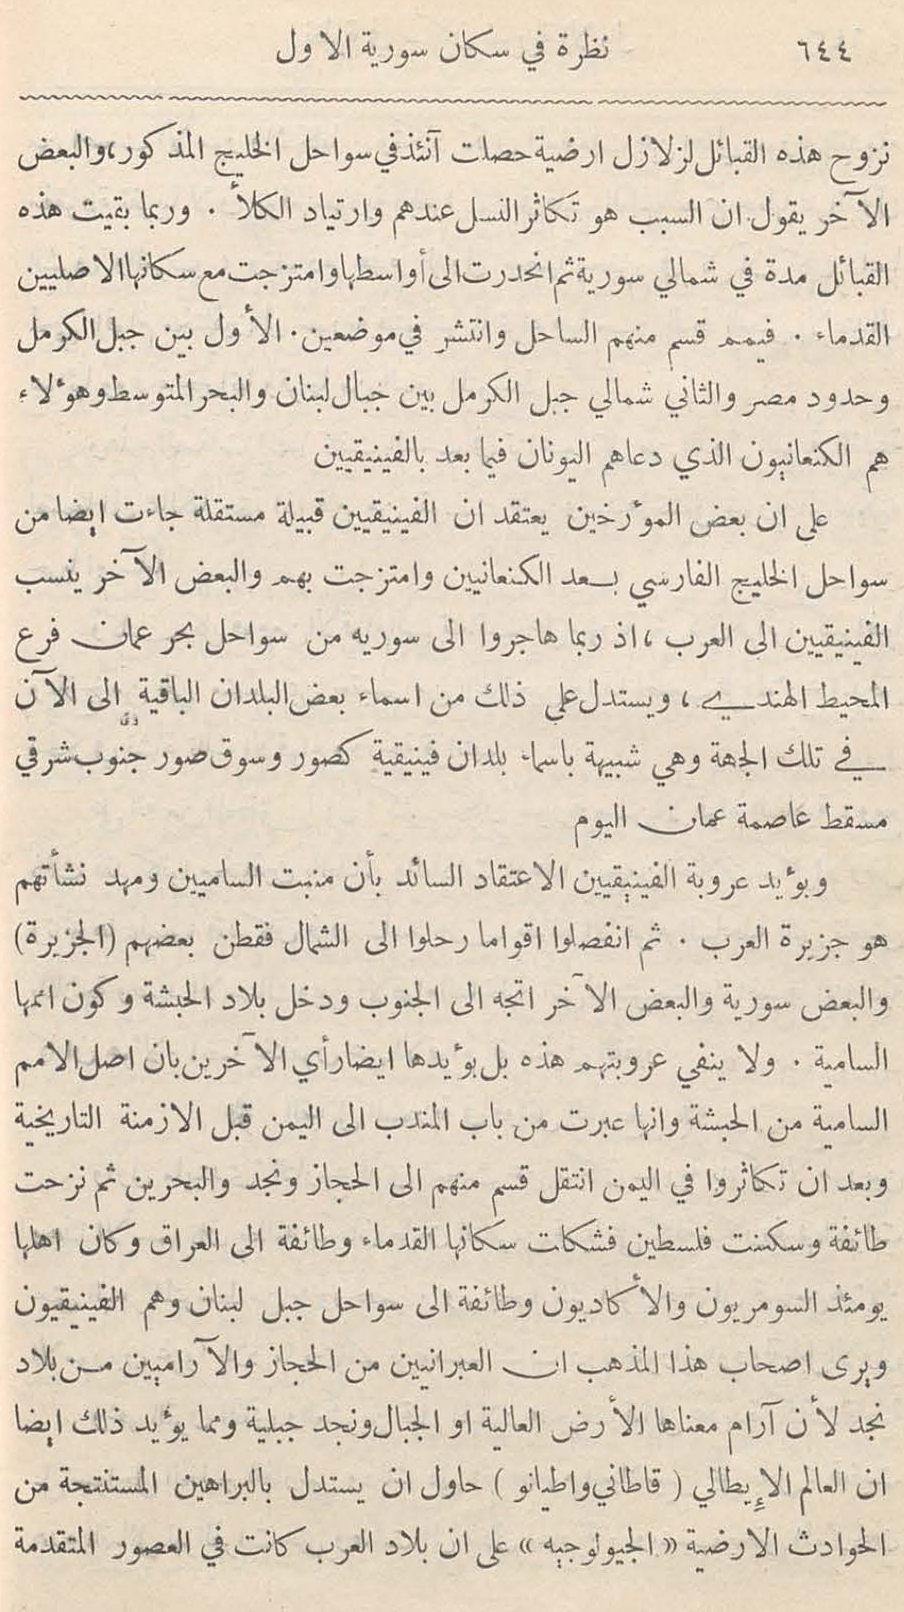 ٦٤٤ نظرة في سكان سورية الاول
نزوح هذه القبائل لزلازل ارضية حصلت آنئذ في سواحل الخليج المذكور، والبعض
الآخر يقول ان السبب هو تكاثر النسل عندهم وارتياد الكلأ . وربما بقيت هذه
القبائل مدة في شمالي سورية ثم انحدرت الى أواسطها وامتزجت مع سكانها الاصليين
القدماء . فيمم قسم منهم الساحل وانتشر في موضعين . الأول بين جبل الكرمل
وحدود مصر والثاني شمالي جبل الكرمل بين جبال لبنان والبحر المتوسط وهؤلاء
هم الكنعانيون الذي دعاهم اليونان فيما بعد بالفينيقيين
على ان بعض المؤرخين يعتقد ان الفينيقيين قبيلة مستقلة جاءت ايضا من
سواحل الخليج الفارسي بعد الكنعانيين وامتزجت بهم والبعض الآخر ينسب
الفينيقيين الى العرب ، اذ ربما هاجروا الى سوريه من سواحل بحر عمان فرع
المحيط الهندي ، ويستدل على ذلك من اسماء بعض البلدان الباقية الى الآن
في تلك الجهة وهي شبيهة باسماء بلدان فينيقية كصور وسوق صور جنوب شرقي
مسقط عاصمة عمان اليوم
ويؤيد عروبة الفينيقيين الاعتقاد السائد بأن منبت الساميين ومهد نشأتهم
هو جزيرة العرب . ثم انفصلوا اقواما رحلوا الى الشمال فقطن بعضهم (الجزيرة)
والبعض سورية والبعض الآخر اتجه الى الجنوب ودخل بلاد الحبشة وكون اممها
السامية . ولا ينفي عروبتهم هذه بل يؤيدها ايضا رأي الآخرين بان اصل الامم
السامية من الحبشة وانها عبرت من باب المندب الى اليمن قبل الازمنة التاريخية
وبعد ان تكاثروا في اليمن انتقل قسم منهم الى الحجاز ونجد والبحرين ثم نزحت
طائفة وسكنت فلسطين فشكلت سكانها القدماء وطائفة الى العراق وكان اهلها
يومئذ السومريون والأكاديون وطائفة الى سواحل جبل لبنان وهم الفينيقيون
ويرى اصحاب هذا المذهب ان العبرانيين من الحجاز والآراميين من بلاد
نجد لأن آرام معناها الأرض العالية او الجبال ونجد جبلية ومما يؤيد ذلك ايضا
ان العالم الإيطالي ( قاطاني واطيانو ) حاول ان يستدل بالبراهين المستنتجة من
الحوادث الارضية « الجيولوجيه » على ان بلاد العرب كانت في العصور المتقدمة